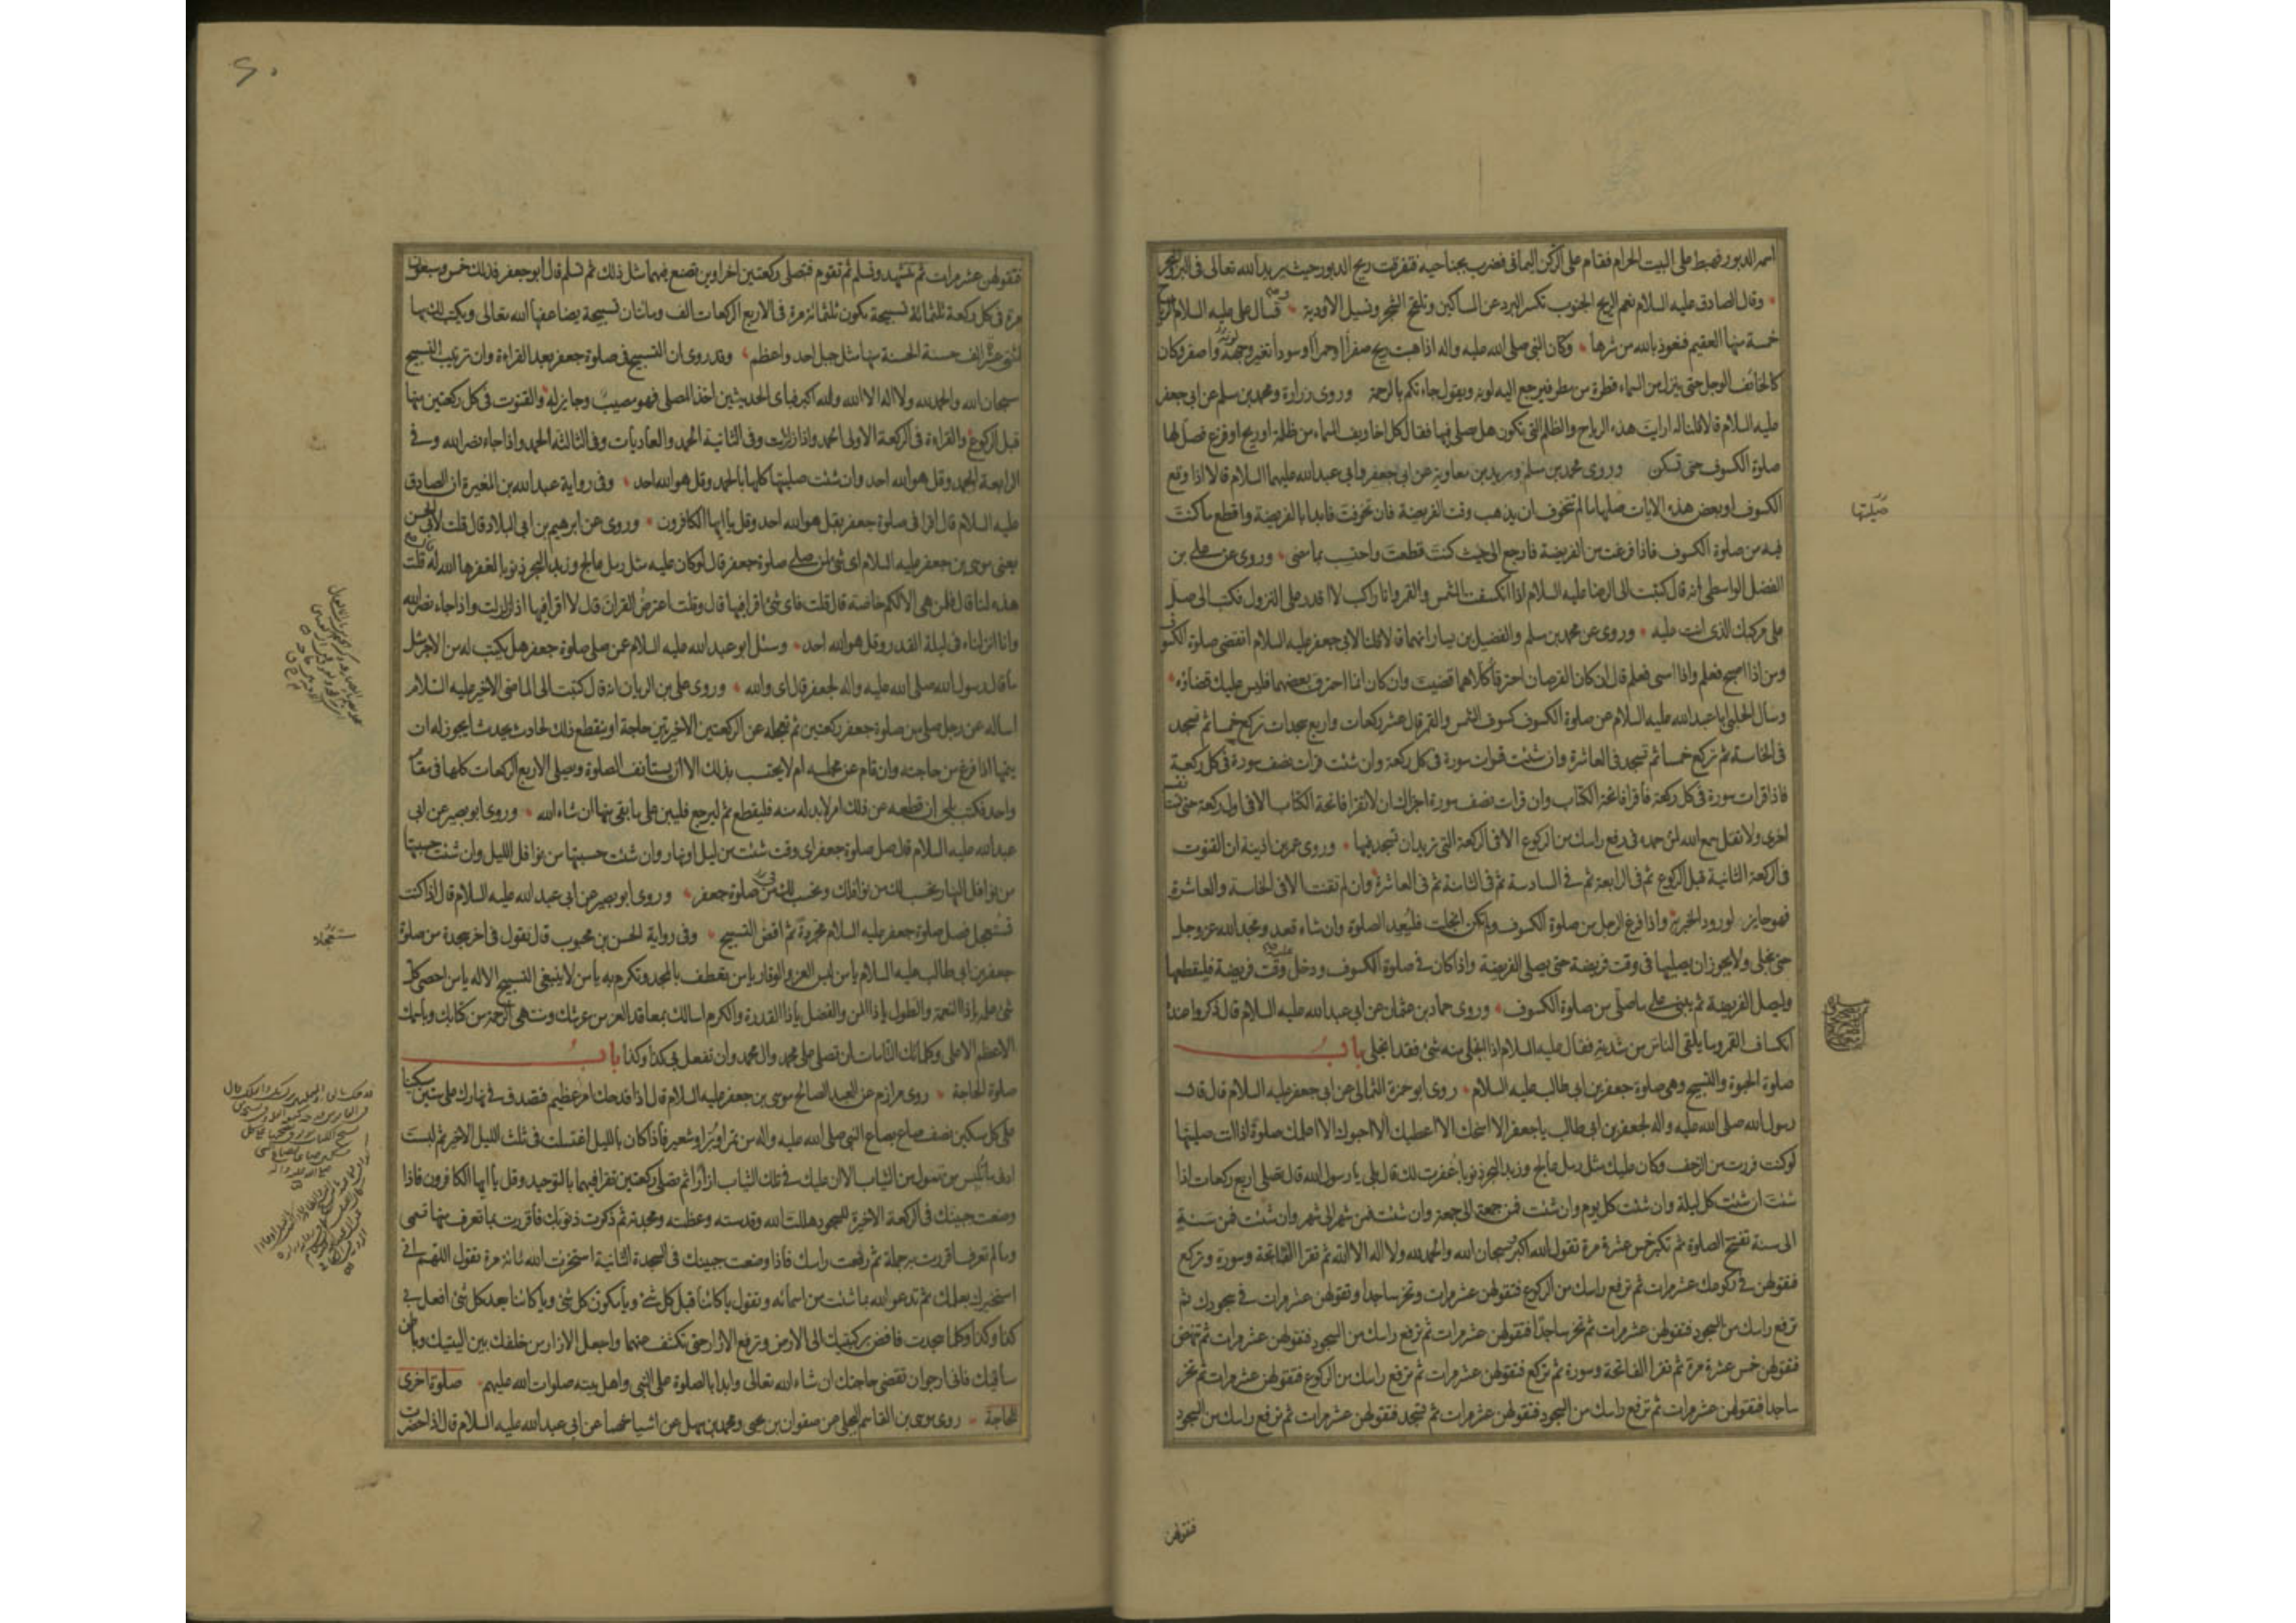 اسمه الدبور فهبط على البيت الحرام فقام على الركن اليماني فضرب بجناحيه فتفرقت ريح الدبور حيث يريد الله تعالى في البر والبحر
وقال الصادق عليه السلام نعم الريح الجنوب تكسر البرد عن المساكين وتلقح الشجر وتسيل الاودية وقال على عليه السلام الرياح
خمسة منها العقيم فنعوذ بالله من شرها وكان النبي صلى الله عليه واله اذا هبت ريح صفراء او حمراء او سوداء تغير وجهه واصفر وكان
كالخائف الوجل حتى ينزل من السماء قطرة من مطر فيرجع اليه لونه ويقول جاءتكم بالرحمة وروى زرارة ومحمد بن مسلم عن ابي جعفر
عليه السلام قالا قلنا له ارايت هذه الرياح والظلم التي تكون هل يصلى لها فقال كل اخاويف السماء من ظلمة او ريح او فزع فصل لها
صلوة الكسوف حتى تسكن وروى محمد بن مسلم وبريد بن معاوية عن ابي جعفر وابي عبد الله عليهما السلام قالا اذا وقع
الكسوف او بعض هذه الايات صليتها ما لم تتخوف ان يذهب وقت الفريضة فان تخوفت فابدا بالفريضة واقطع ما كنت
فيه من صلوة الكسوف فاذا فرغت من الفريضة فارجع الى حيث كنت قطعت واحتسب بما مضى وروى عن على بن
الفضل الواسطي انه قال كتبت الى الرضا عليه السلام اذا انكسفت الشمس والقمر وانا راكب لا اقدر على النزول فكتب الى صل
على مركبك الذي انت عليه وروى عن محمد بن مسلم والفضيل بن يسار انهما قالا قلنا لابي جعفر عليه السلام اتقضى صلوة الكسوف
ومن اذا اصبح فعلم واذا امسى فعلم قال ان كان القرصان احترقا كلاهما قضيت وان كان انما احترق بعضهما فليس عليك قضاؤه
وسال الحلبي ابا عبد الله عليه السلام عن صلوة الكسوف كسوف الشمس والقمر قال عشر ركعات واربع سجدات تركع خمسا ثم تسجد
في الخامسة ثم تركع خمسا ثم تسجد في العاشرة وان شئت قرات سورة في كل ركعة وان شئت قرات نصف سورة في كل ركعة
فاذا قرات سورة في كل ركعة فاقرا فاتحة الكتاب وان قرات نصف سورة اجزاك ان لا تقرا فاتحة الكتاب الا في اول ركعة حتى تستانف
اخرى ولا تقل سمع الله لمن حمده في رفع راسك من الركوع الا في الركعة التي تريد ان تسجد فيها وروى عمر بن اذينة ان القنوت
في الركعة الثانية قبل الركوع ثم في الرابعة ثم في السادسة ثم في الثامنة ثم في العاشرة وان لم تقنت الا في الخامسة والعاشرة
فهو جايز لورود الخبر به واذا فرغ الرجل من صلوة الكسوف ولم تكن انجلت فليعد الصلوة وان شاء قعد ومجد الله عز وجل
حتى ينجلى ولا يجوز ان يصليها في وقت فريضة حتى يصلى الفريضة واذا كان في صلوة الكسوف ودخل وقت فريضة فليقطعها
وليصل الفريضة ثم يبنى على ما صلى من صلوة الكسوف وروى حماد بن عثمان عن ابي عبد الله عليه السلام قال ذكروا عنده
انكساف القمر وما يلقى الناس من شدته فقال عليه السلام اذا انجلى منه شئ فقد انجلى باب
صلوة الحبوة والتسبيح وهي صلوة جعفر بن ابي طالب عليه السلام روى ابو حمزة الثمالي عن ابي جعفر عليه السلام قال قال
رسول الله صلى الله عليه واله لجعفر بن ابي طالب يا جعفر الا امنحك الا اعطيك الا احبوك الا اعلمك صلوة اذا انت صليتها
لو كنت فررت من الزحف وكان عليك مثل رمل عالج وزبد البحر ذنوبا غفرت لك قال بلى يا رسول الله قال تصلى اربع ركعات اذا
شئت ان شئت كل ليلة وان شئت كل يوم وان شئت فمن جمعة الى جمعة وان شئت فمن شهر الى شهر وان شئت فمن سنة
الى سنة تفتتح الصلوة ثم تكبر خمس عشرة مرة تقول الله اكبر وسبحان الله والحمد لله ولا اله الا الله ثم تقرا الفاتحة وسورة وتركع
فتقولهن في ركوعك عشر مرات ثم ترفع راسك من الركوع فتقولهن عشر مرات وتخر ساجدا وتقولهن عشر مرات في سجودك ثم
ترفع راسك من السجود فتقولهن عشر مرات ثم تخر ساجدا فتقولهن عشر مرات ثم ترفع راسك من السجود فتقولهن عشر مرات ثم تنهض
فتقولهن خمس عشرة مرة ثم تقرا الفاتحة وسورة ثم تركع فتقولهن عشر مرات ثم ترفع راسك من الركوع فتقولهن عشر مرات ثم تخر
ساجدا فتقولهن عشر مرات ثم ترفع راسك من السجود فتقولهن عشر مرات ثم تسجد فتقولهن عشر مرات ثم ترفع راسك من السجود
فتقولهن
صليتها
فتقولهن عشر مرات ثم تتشهد وتسلم ثم تقوم فتصلى ركعتين اخراوين تصنع فيهما مثل ذلك ثم تسلم قال ابو جعفر فذلك خمس وسبعون
مرة في كل ركعة ثلثمائة تسبيحة تكون ثلثمائة مرة في الاربع الركعات الف ومائتان تسبيحة يضاعفها الله تعالى ويكتب لك بها
اثنتي عشرة الف حسنة الحسنة منها مثل جبل احد واعظم وقد روى ان التسبيح في صلوة جعفر بعد القراءة وان ترتيب التسبيح
سبحان الله والحمد لله ولا اله الا الله والله اكبر فباى الحديثين اخذ المصلى فهو مصيب وجايز له والقنوت في كل ركعتين منها
قبل الركوع والقراءة في الركعة الاولى الحمد واذا زلزلت وفي الثانية الحمد والعاديات وفي الثالثة الحمد واذا جاء نصر الله وفي
الرابعة الحمد وقل هو الله احد وان شئت صليتها كلها بالحمد وقل هو الله احد وفي رواية عبد الله بن المغيرة ان الصادق
عليه السلام قال اقرا في صلوة جعفر بقل هو الله احد وقل يا ايها الكافرون وروى عن ابرهيم بن ابي البلاد قال قلت لابي الحسن
يعنى موسى بن جعفر عليه السلام اى شئ لمن صلى صلوة جعفر قال لو كان عليه مثل رمل عالج وزبد البحر ذنوبا لغفرها الله له قال قلت
هذه لنا قال فلمن هي الا لكم خاصة قال قلت فاى شئ اقرا فيها قال وقلت اعترض القران قال لا اقرا فيها اذا زلزلت واذا جاء نصر الله
وانا انزلناه في ليلة القدر وقل هو الله احد وسئل ابو عبد الله عليه السلام عمن صلى صلوة جعفر هل يكتب له من الاجر مثل
ما قال رسول الله صلى الله عليه واله لجعفر قال اى والله وروى على بن الريان انه قال كتبت الى الماضى الاخير عليه السلام
اساله عن رجل صلى من صلوة جعفر ركعتين ثم تعجله عن الركعتين الاخيرتين حاجة او يقطع ذلك لحادث يحدث ايجوز له ان
يتمها اذا فرغ من حاجته وان قام عن مجلسه ام لا يحتسب بذلك الا ان يستانف الصلوة ويصلى الاربع الركعات كلها في مقام
واحد فكتب بلى ان قطعه عن ذلك امر لا بد له منه فليقطع ثم ليرجع فليبن على ما بقى منها ان شاء الله وروى ابو بصير عن ابي
عبد الله عليه السلام قال صل صلوة جعفر اى وقت شئت من ليل او نهار وان شئت حسبتها من نوافل الليل وان شئت حسبتها
من نوافل النهار يحسب لك من نوافلك وتحسب لك من صلوة جعفر وروى ابو بصير عن ابي عبد الله عليه السلام قال اذا كنت
مستعجلا فصل صلوة جعفر عليه السلام مجردة ثم اقض التسبيح وفي رواية الحسن بن محبوب قال تقول في اخر سجدة من صلوة
جعفر بن ابي طالب عليه السلام يا من لبس العز والوقار يا من تعطف بالمجد وتكرم به يا من لا ينبغى التسبيح الا له يا من احصى كل
شئ علمه يا ذا النعمة والطول يا ذا المن والفضل يا ذا القدرة والكرم اسالك بمعاقد العز من عرشك ومنتهى الرحمة من كتابك وباسمك
الاعظم الاعلى وكلماتك التامات ان تصلى على محمد وال محمد وان تفعل بى كذا وكذا باب
صلوة الحاجة روى مرازم عن العبد الصالح موسى بن جعفر عليه السلام قال اذا فدحك امر عظيم فتصدق في نهارك على ستين مسكينا
على كل مسكين نصف صاع بصاع النبي صلى الله عليه واله من تمر او بر او شعير فاذا كان بالليل اغتسلت في ثلث الليل الاخير ثم لبست
ادنى ما تلبس من تعول من الثياب الا ان عليك في تلك الثياب ازارا ثم تصلى ركعتين تقرا فيهما بالتوحيد وقل يا ايها الكافرون فاذا
وضعت جبينك في الركعة الاخيرة للسجود هللت الله وقدسته وعظمته ومجدته ثم ذكرت ذنوبك فاقررت بما تعرف منها تسمى
وما لم تعرف اقررت به جملة ثم رفعت راسك فاذا وضعت جبينك في السجدة الثانية استخرت الله مائة مرة تقول اللهم انى
استخيرك بعلمك ثم تدعو الله بما شئت من اسمائه وتقول يا كائنا قبل كل شئ ويا مكون كل شئ ويا كائنا بعد كل شئ افعل بى
كذا وكذا وكلما سجدت فافض بركبتيك الى الارض وترفع الازار حتى تكشف عنهما واجعل الازار من خلفك بين اليتيك وباطن
ساقيك فانى ارجو ان تقضى حاجتك ان شاء الله تعالى وابدا بالصلوة على النبي واهل بيته صلوات الله عليهم صلوة اخرى
للحاجة روى موسى بن القاسم البجلى عن صفوان بن يحيى ومحمد بن سهل عن اشياخهما عن ابي عبد الله عليه السلام قال اذا حضرت
مستعجلا